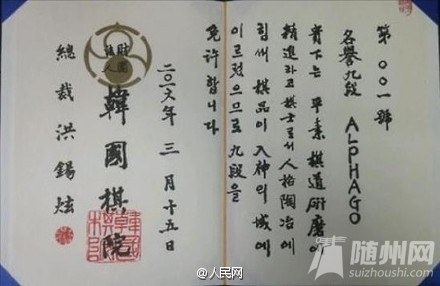 第〇〇一號
名譽九段 ALPHAGO
貴下는 平素 棋道 硏磨에
精進하고 棋士로서 人格陶冶에
힘써 棋品이 入神의 域에
이르렀으므로 九段을
免許합니다
二〇一六年 三月 十五日
財團法人
韓國棋院
總裁 洪錫炫
@人民网
随州网
suizhoushi.com